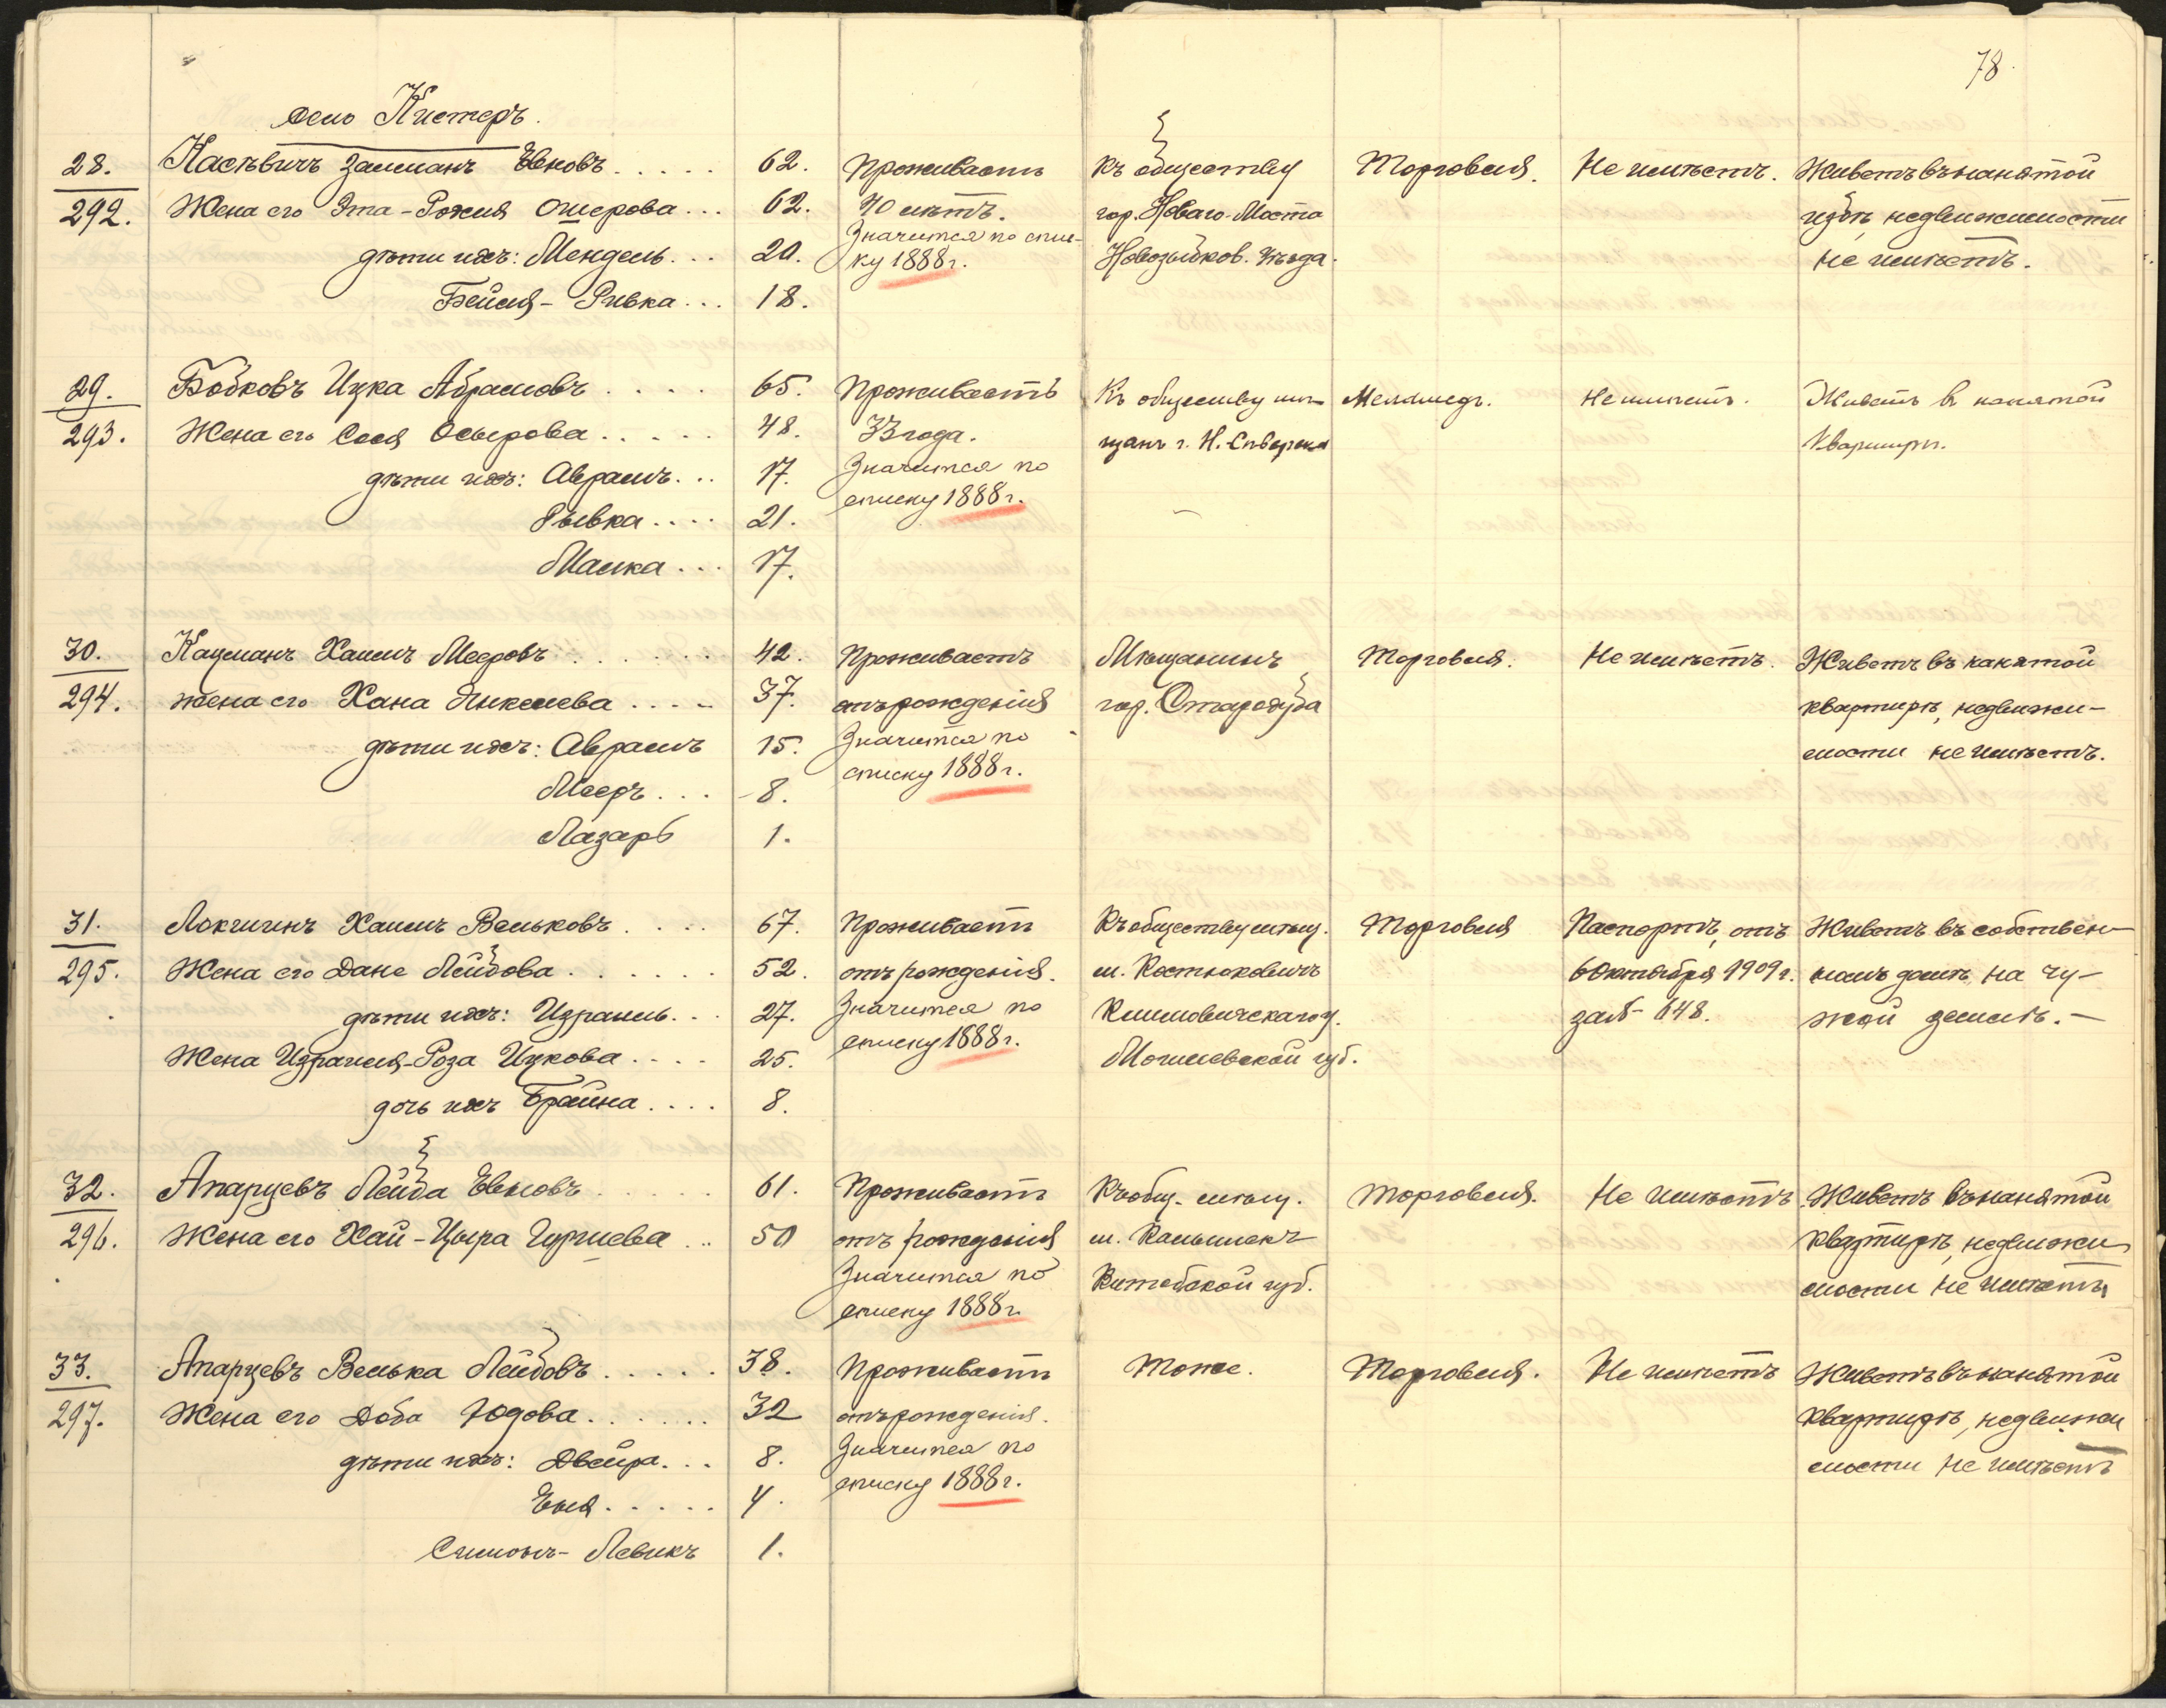 78.
село Кистеръ.
28. Каслѣвичъ Залманъ Евновъ..... 62. Проживаетъ Къ обществу Торговля. Не имѣетъ. Живетъ въ нанятой
292. Жена его Эта-Рохля Ошерова... 62. 40 лѣтъ. гор. Новаго-Моста избѣ, недвижимости
Значится по спис-
дѣти ихъ: Мендель... 20. ку 1888 г. Новозыбков. уѣзда. не имѣетъ.
Бейля-Ривка... 18.
29. Бобковъ Ицка Абрамовъ.... 65. Проживаетъ Къ обществу мѣ- Меламедъ. Не имѣетъ. Живетъ в нанятой
293. Жена его Сося Осырова..... 48. 33 года. щанъ г. Н. Сѣверска Квартирѣ.
дѣти ихъ: Авраамъ... 17. Значится по
списку 1888 г.
Рывка.... 21.
Малка... 17.
30. Кацманъ Хаимъ Мееровъ...... 42. Проживаетъ Мѣщанинъ Торговля. Не имѣетъ. Живетъ въ нанятой
294. жена его Хана Янкелева.... 37. отъ рожденія гор. Стародуба квартирѣ, недвижи-
дѣти ихъ: Авраамъ 15. Значится по мости не имѣетъ.
списку 1888 г.
Мееръ... 8.
Лазарь 1.
31. Локшинъ Хаимъ Вельковъ.... 67. Проживаетъ Къ обществу мѣщ. Торговля Паспортъ, отъ Живетъ въ собствен-
295. Жена его Дане Лейбова...... 52. отъ рожденія. м. Костюковичъ 6 Октября 1909 г. номъ домѣ, на чу-
дѣти ихъ: Израиль... 27. Значится по Климовичскаго у. за № 648. жой землѣ.-
списку 1888 г.
Жена Израиля-Роза Ицкова.... 25. Могилевской губ.
дочь ихъ Брайна.... 8.
32. Апарцевъ Лейба Евновъ..... 61. Проживаетъ Къ общ. мѣщ. Торговля. Не имѣетъ Живетъ въ нанятой
296. Жена его Хай-Цыра Гуриева.. 50 отъ рожденія м. Витебской губ. квартирѣ, недвижи
Значится по мости не имѣетъ
списку 1888 г.
33. Апарцевъ Велька Лейбовъ..... 38. Проживаетъ Тоже. Торговля. Не имѣетъ Живетъ въ нанятой
297. Жена его Доба Юдова...... 32 отъ рожденія. квартирѣ, недвижи
дѣти ихъ: Двейра... 8. Значится по мости не имѣетъ
списку 1888 г.
Евля..... 4.
Симонъ-Левикъ 1.